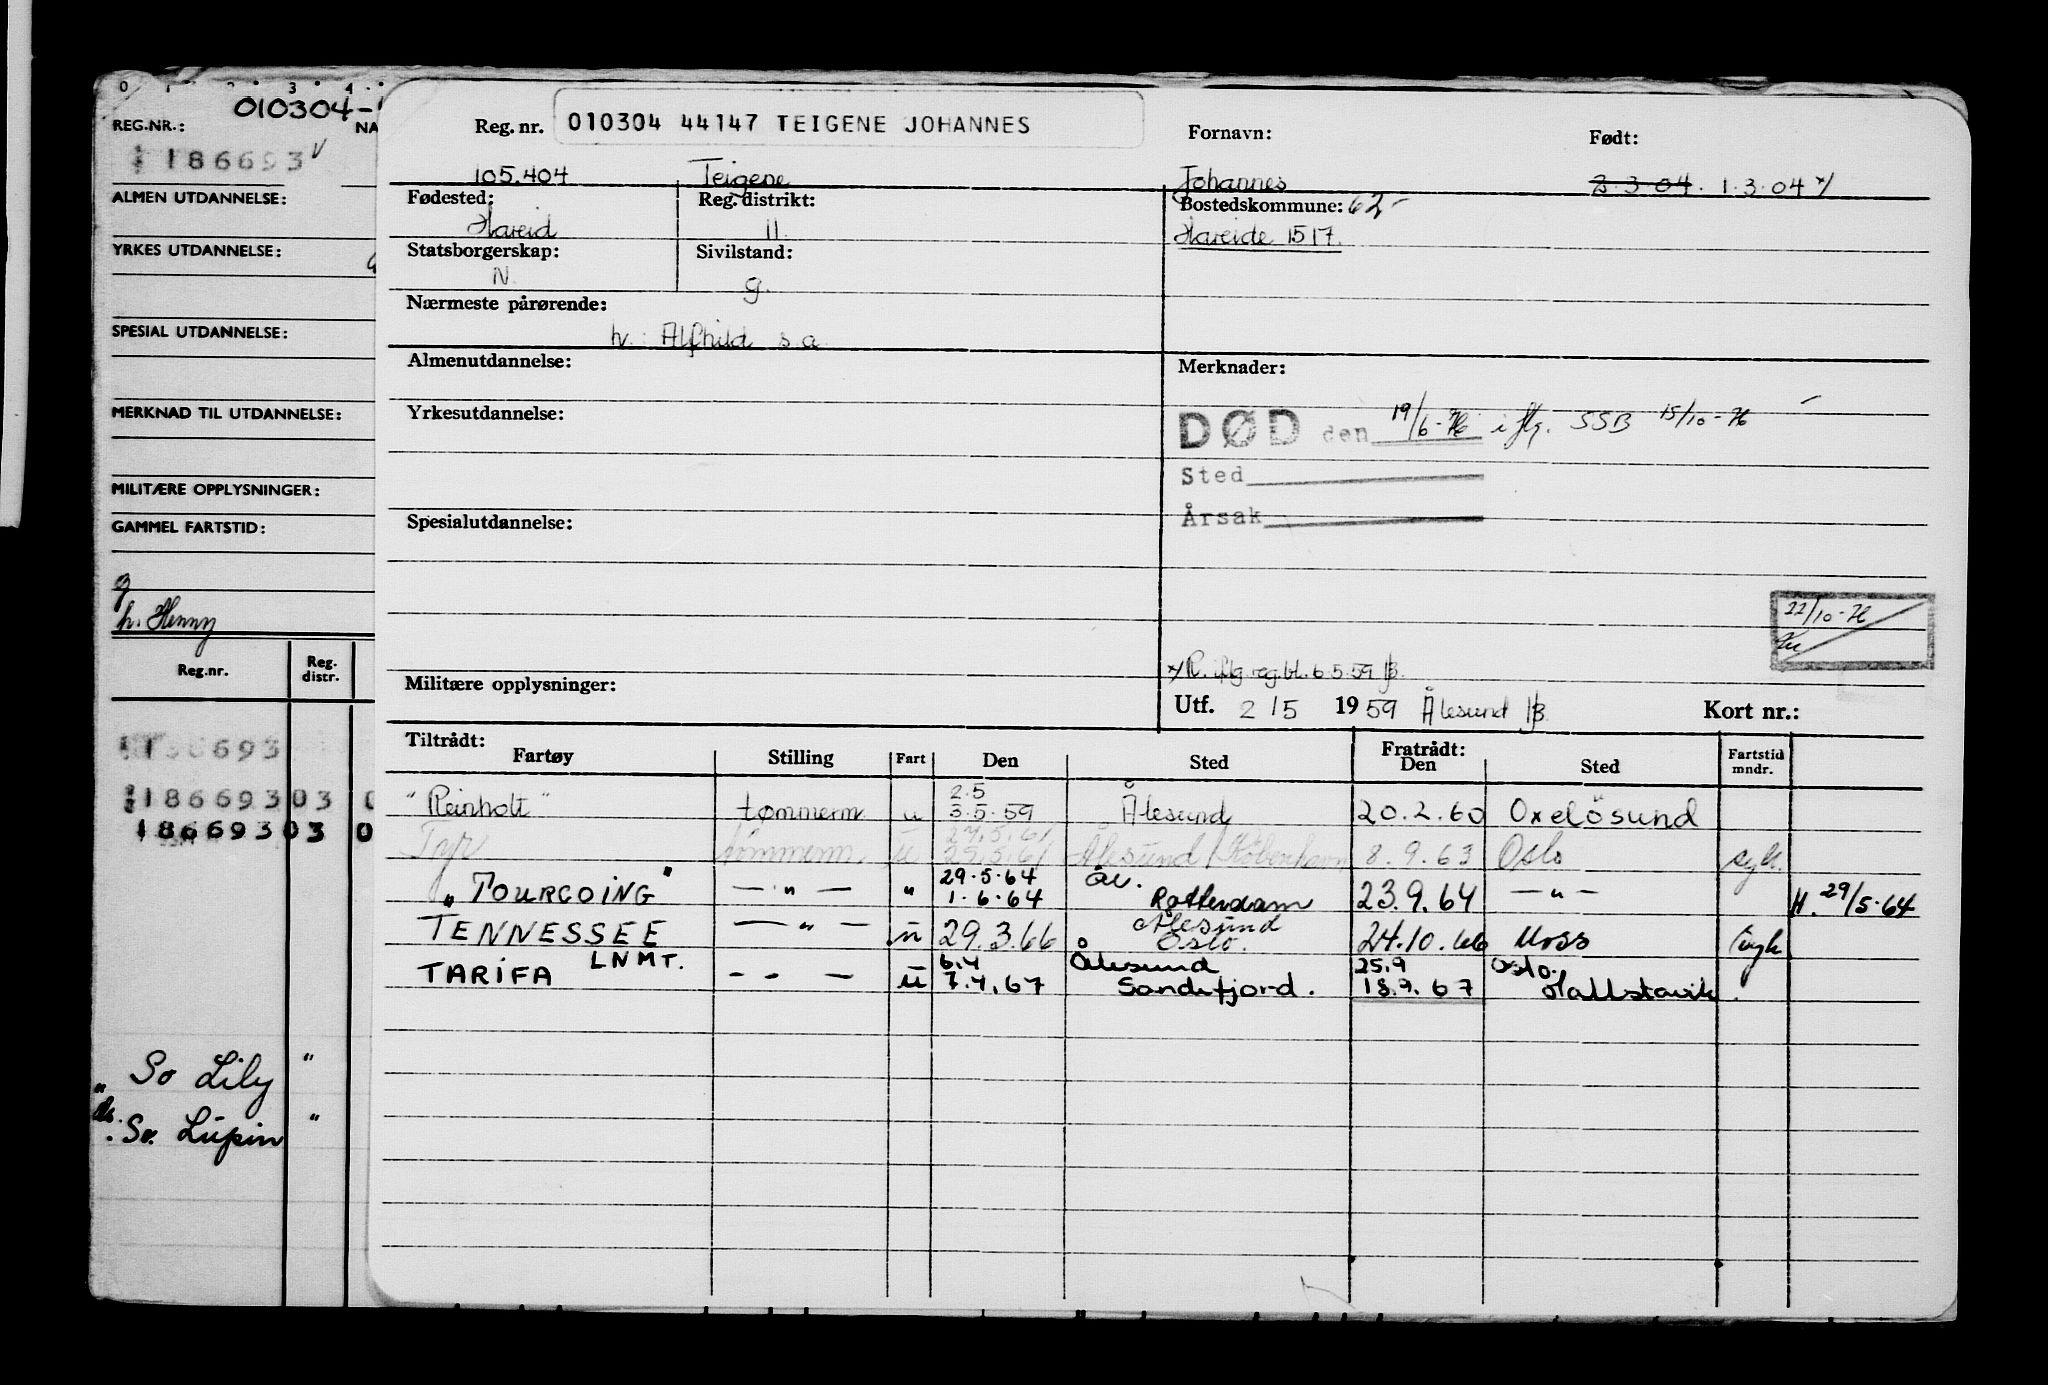 0 1 3 4
010304-
REG.NR.: NA
186693 v
ALMEN UTDANNELSE:
YRKES UTDANNELSE:
SPESIAL UTDANNELSE:
MERKNAD TIL UTDANNELSE:
MILITÆRE OPPLYSNINGER:
GAMMEL FARTSTID:
g
h. Henny
Reg.nr. Reg. distr.
186693
186693 03 0
186693 03 0
So Lily "
So. Lupin "
Reg. nr. 010304 44147 TEIGENE JOHANNES Fornavn: Født:
105.404 Teigene Johannes 2.3.04. 1.3.04 x/
Fødested: Reg. distrikt: Bostedskommune: 62-
Hareid 11. Hareide 1517.
Statsborgerskap: Sivilstand:
N. g.
Nærmeste pårørende:
h. Alfhild s.a.
Almenutdannelse: Merknader:
Yrkesutdannelse:
DØD den 19/6-76 i flg. SSB 15/10-76
Sted
Årsak
Spesialutdannelse:
22/10-76
x/R. iflg. reg.bl. 6.5.59 B.
Militære opplysninger:
Utf. 2/5 1959 Ålesund B Kort nr.:
Tiltrådt: Fratrådt:
Fartøy Stilling Fart Den Sted Den Sted Fartstid mndr.
2.5
"Reinholt" tømmerm u 3.5.59 Ålesund 20.2.60 Oxelösund
27.5.61
Tyr tømmerm u 29.5.61 Ålesund / København 8.9.63 Oslo syk.
29.5.64 Ål.
"TOURCOING" — " — " 1.6.64 Rotterdam 23.9.64 — " — H. 29/5-64
Ålesund
TENNESSEE — " — u 29.3.66 Oslo. 24.10.66 Moss syk
LNMT. 6.4 Ålesund 25.9 Oslo.
TARIFA - - — u 7.4.67 Sandefjord. 18.7.67 Hallstavik.